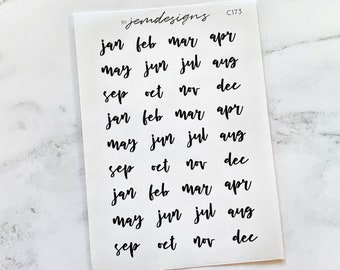 BY jemdesigns C173
jan feb mar apr
may jun jul aug
sep oct nov dec
jan feb mar apr
may jun jul aug
sep oct nov dec
jan feb mar apr
may jun jul aug
sep oct nov dec